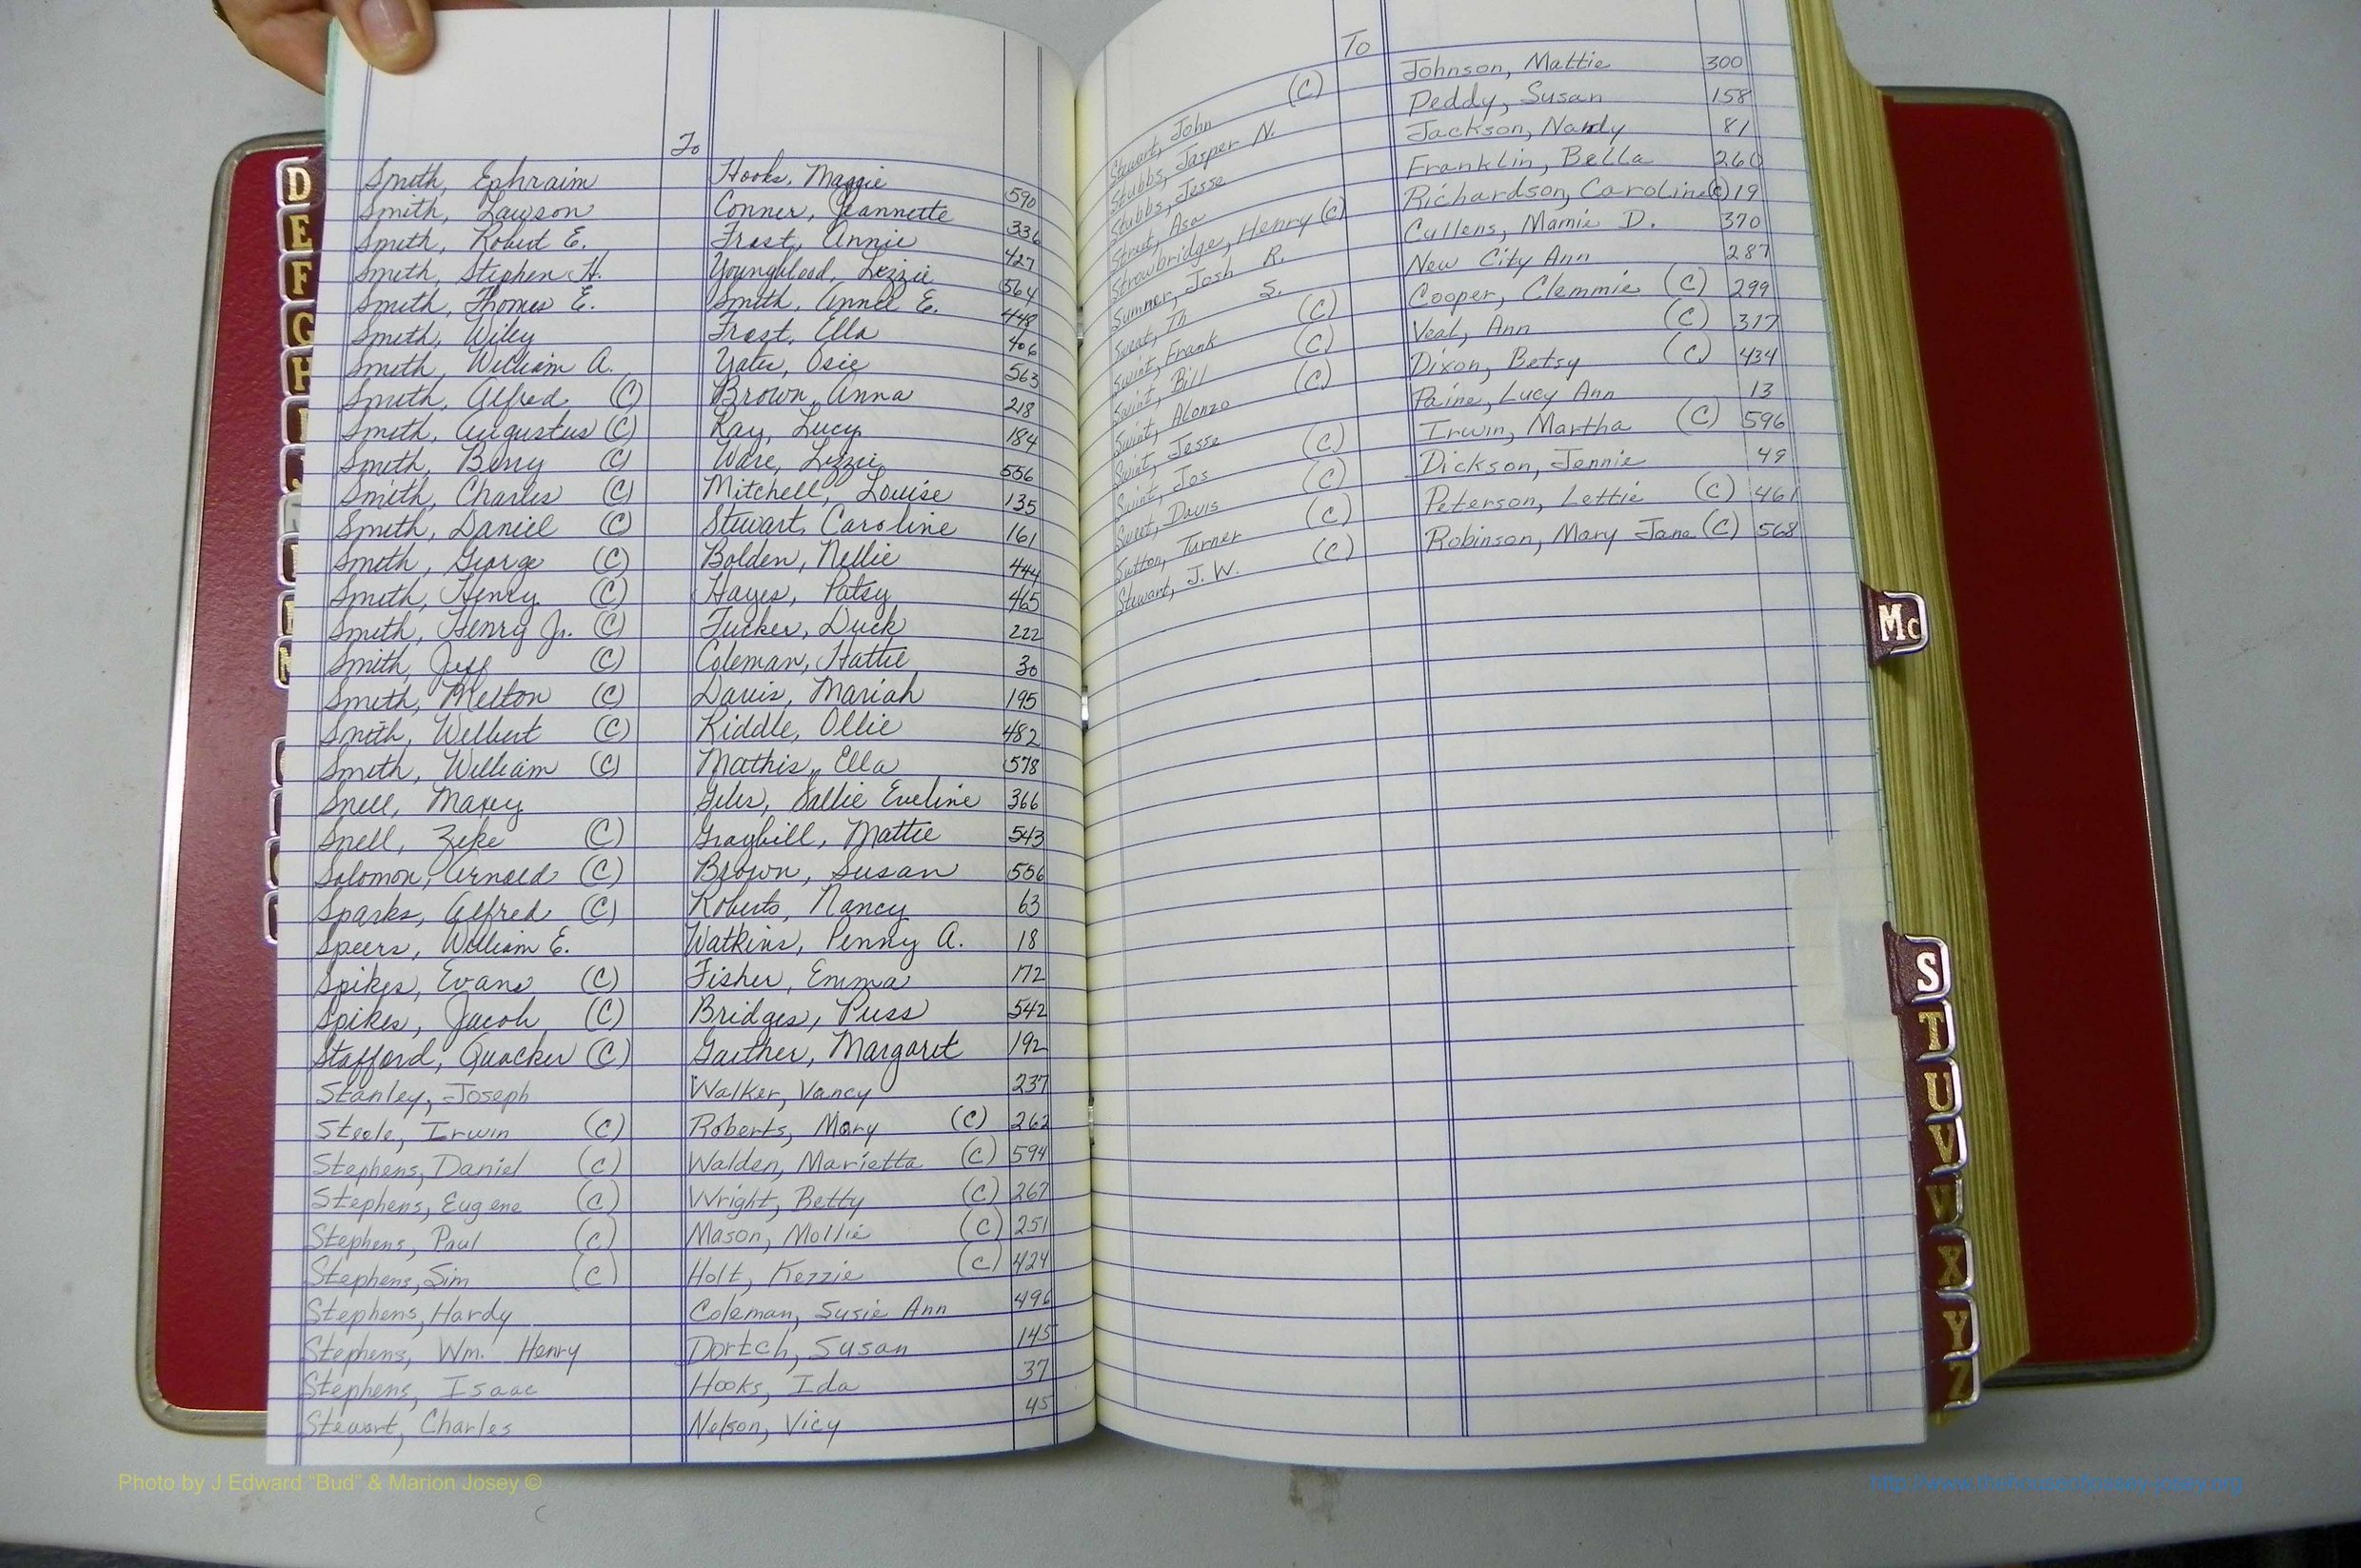 To
Smith, Ephraim Hooks, Maggie 590
Smith, Lawson Conner, Jeannette 336
Smith, Robert E. Frost, Annie 427
Smith, Stephen H. Youngblood, Lizzie 564
Smith, Thomas E. Smith, Annie E. 448
Smith, Wiley Frost, Ella 406
Smith, William A. Yates, Osie 563
Smith, Alfred (C) Brown, Anna 218
Smith, Augustus (C) Kay, Lucy 184
Smith, Berry (C) Ware, Lizzie 556
Smith, Charles (C) Mitchell, Louise 135
Smith, Daniel (C) Stewart, Caroline 161
Smith, George (C) Bolden, Nellie 444
Smith, Henry (C) Hayes, Patsy 465
Smith, Henry Jr. (C) Tucker, Duck 222
Smith, Jeff (C) Coleman, Hattie 30
Smith, Melton (C) Davis, Mariah 195
Smith, Welbert (C) Riddle, Ollie 482
Smith, William (C) Mathis, Ella 578
Snell, Maxey Giles, Sallie Eveline 366
Snell, Zeke (C) Graybill, Mattie 543
Solomon, Arnold (C) Brown, Susan 556
Sparks, Alfred (C) Roberts, Nancy 63
Speers, William E. Watkins, Penny A. 18
Spikes, Evans (C) Fisher, Emma 172
Spikes, Jacob (C) Bridges, Puss 542
Stafford, Quacker (C) Gaither, Margaret 192
Stanley, Joseph Walker, Vancy 237
Steele, Irwin (C) Roberts, Mary (C) 262
Stephens, Daniel (C) Walden, Marietta (C) 594
Stephens, Eugene (C) Wright, Betty (C) 267
Stephens, Paul (C) Mason, Mollie (C) 251
Stephens, Sim (C) Holt, Kezzie (C) 424
Stephens, Hardy Coleman, Susie Ann 496
Stephens, Wm. Henry Dortch, Susan 145
Stephens, Isaac Hooks, Ida 37
Stewart, Charles Nelson, Vicy 45
To
Stewart, John (C) Johnson, Mattie 300
Stubbs, Jasper N. Peddy, Susan 158
Stubbs, Jesse Jackson, Nandy 81
Street, Asa Franklin, Bella 260
Strowbridge, Henry (C) Richardson, Caroline (C) 19
Sumner, Josh R. Cullens, Mamie D. 370
Sweat, Th S. New City Ann 287
Swint, Frank (C) Cooper, Clemmie (C) 299
Swint, Bill (C) Veal, Ann (C) 317
Swint, Alonzo (C) Dixon, Betsy (C) 434
Swint, Jesse Paine, Lucy Ann 13
Swint, Jos (C) Irwin, Martha (C) 596
Sweet, Davis (C) Dickson, Jennie 49
Sutton, Turner (C) Peterson, Lettie (C) 461
Stewart, J. W. (C) Robinson, Mary Jane (C) 568
D
E
F
G
H
Mc
S
T
U
V
W
X
Y
Z
Photo by J Edward "Bud" & Marion Josey ©